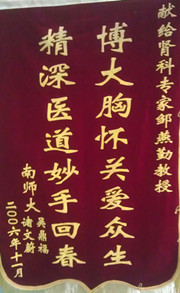 献给肾科专家邹燕勤教授
博大胸怀关爱众生
精深医道妙手回春
南师大 吴鼎福
诸文蔚
二00六年十一月